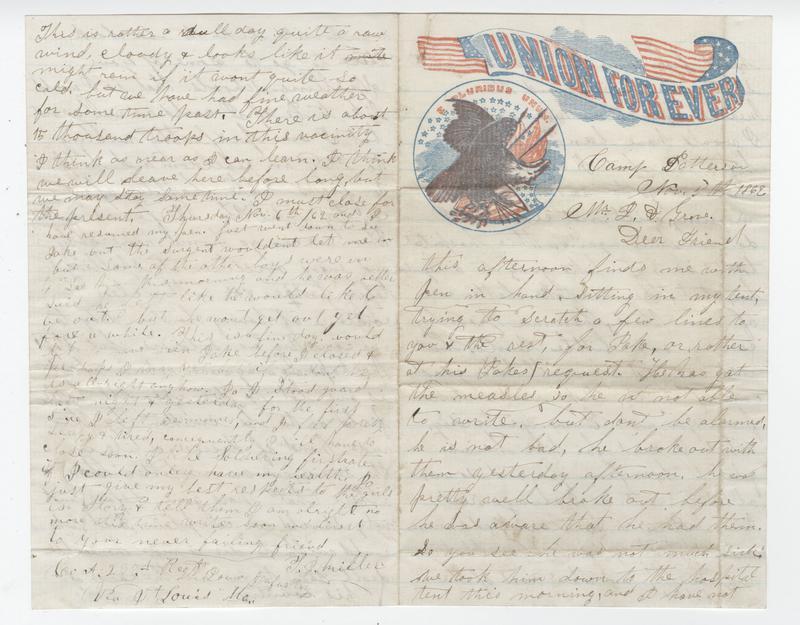 UNION FOR EVER
E PLURIBUS UNUM.
Camp Patterson
Nov. 5th 1862
Mr. P. D Grove.
Dear Friend
this afternoon finds me with
pen in hand, sitting in my tent,
trying to scratch a few lines to
you & the rest, for Jake, or rather
at his (Jakes) request. He has got
the measles so he is not able
to write, but dont be alarmed,
he is not bad, he broke out with
them yesterday afternoon. he was
pretty well broke out before
he was aware that he had them.
So you see he was not much sick.
we took him down to the hospital
tent this morning, and I have not
This is rather a dull day quite a raw
wind, cloudy & looks like it
might rain if it wont quite so
cold. but we have had fine weather
for some time past. There is about
15 thousand troops in this vacinity
I think as near as I can learn. I think
we will leave here before long, but
we may stay some time. I must close for
the present. Thursday Nov. 6th /62 and I
have resumed my pen. just went down to see
Jake but the surgent wouldent let me in
but some of the other boys were in
to see him this morning and he was better
said he felt like he would like to
be out. but he wont get out yet
for a while. This is a fine day. would
like to have seen Jake before I closed &
all right any how. P. D. I stood guard
last night & yesterday for the first
since I left, and I feel pretty
sleepy & tired, consequently I will have to
close soon. I like soldiering firstrate
if I could only have my health.
just give my best respects to the girls
in Story & tell them I am alright no
more this time write soon and direct
to your never failing friend
T. Miller
Co A. 23rd Regt
Iowa
Via St Louis Mo.